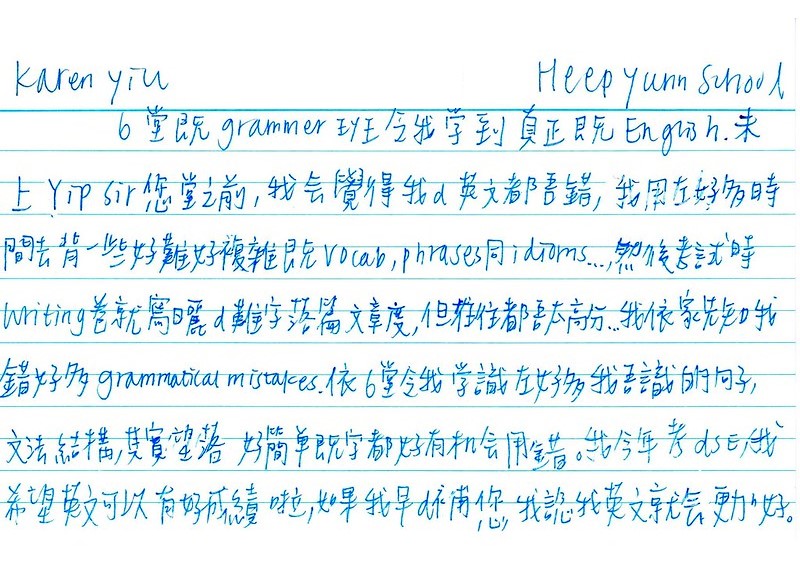 Karen Yiu Heep Yunn School
6堂既grammer班令我学到真正既English. 未
上Yip sir您堂之前, 我会覺得我d英文都唔錯, 我用左好多時
間去背一些好難好複雜既vocab, phrases同idioms..., 然後考試時
writing卷就寫晒d難字落篇文章度, 但往往都唔太高分... 我依家先知我
錯好多grammatical mistakes. 依6堂令我学識左好多我唔識的句子,
文法結構, 其實望落 好簡单既字都好有机会用錯。我今年考dse, 我
希望英文可以有好成績啦, 如果我早d 你, 我諗我英文就会更加好。